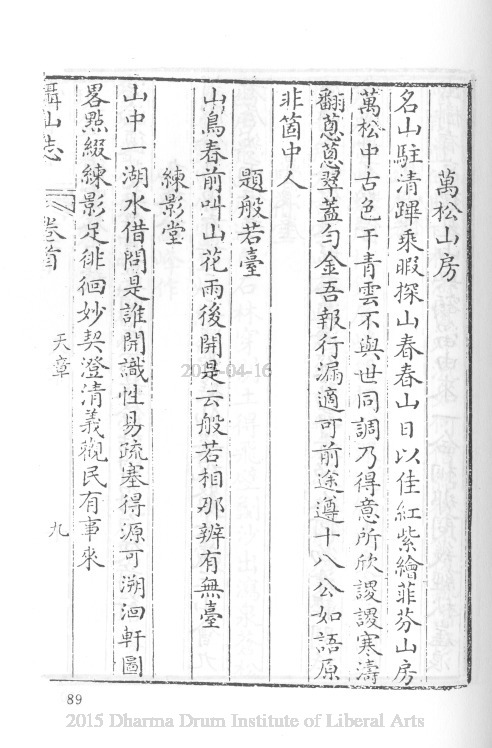 萬松山房
名山駐清蹕乘暇探山春春山日以佳紅紫繪菲芬山房
萬松中古色干青雲不與世同調乃得意所欣謖謖寒濤
翻蔥蔥翠蓋勻金吾報行漏適可前途遵十八公如語原
非箇中人
題般若臺
山鳥春前叫山花雨後開是云般若相那辨有無臺
練影堂
山中一湖水借問是誰開識性易疏塞得源可溯洄軒圖
畧點綴練影足徘徊妙契澄清義觀民有事來
攝山志
卷首
天章
九
89
2015-04-16
2015 Dharma Drum Institute of Liberal Arts